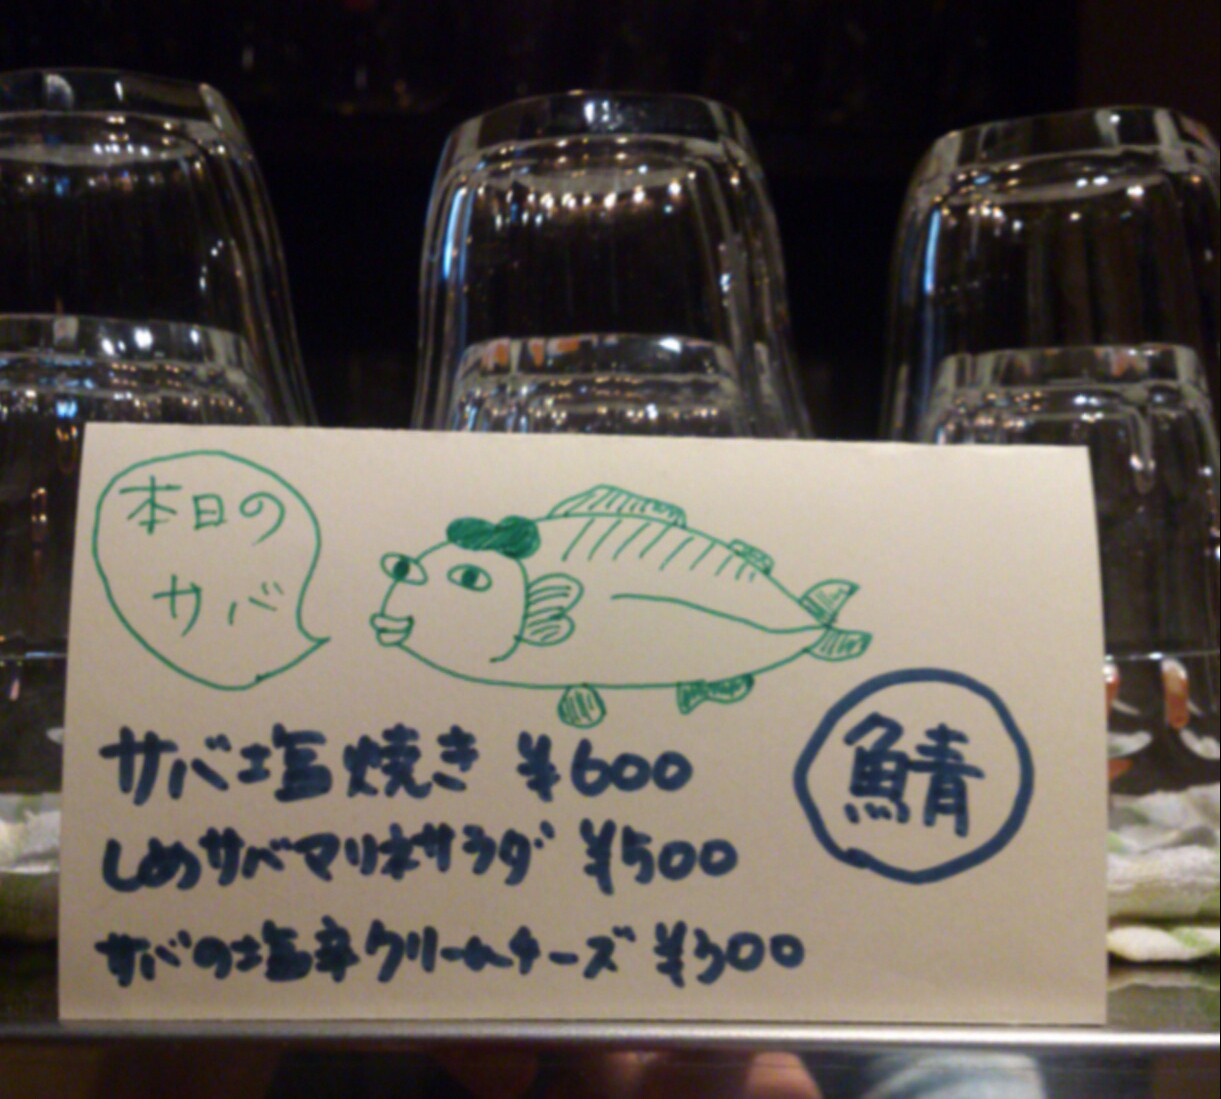 本日の
サバ
サバ塩焼き ¥600
鯖
しめサバマリネサラダ ¥500
サバの塩辛クリームチーズ ¥300